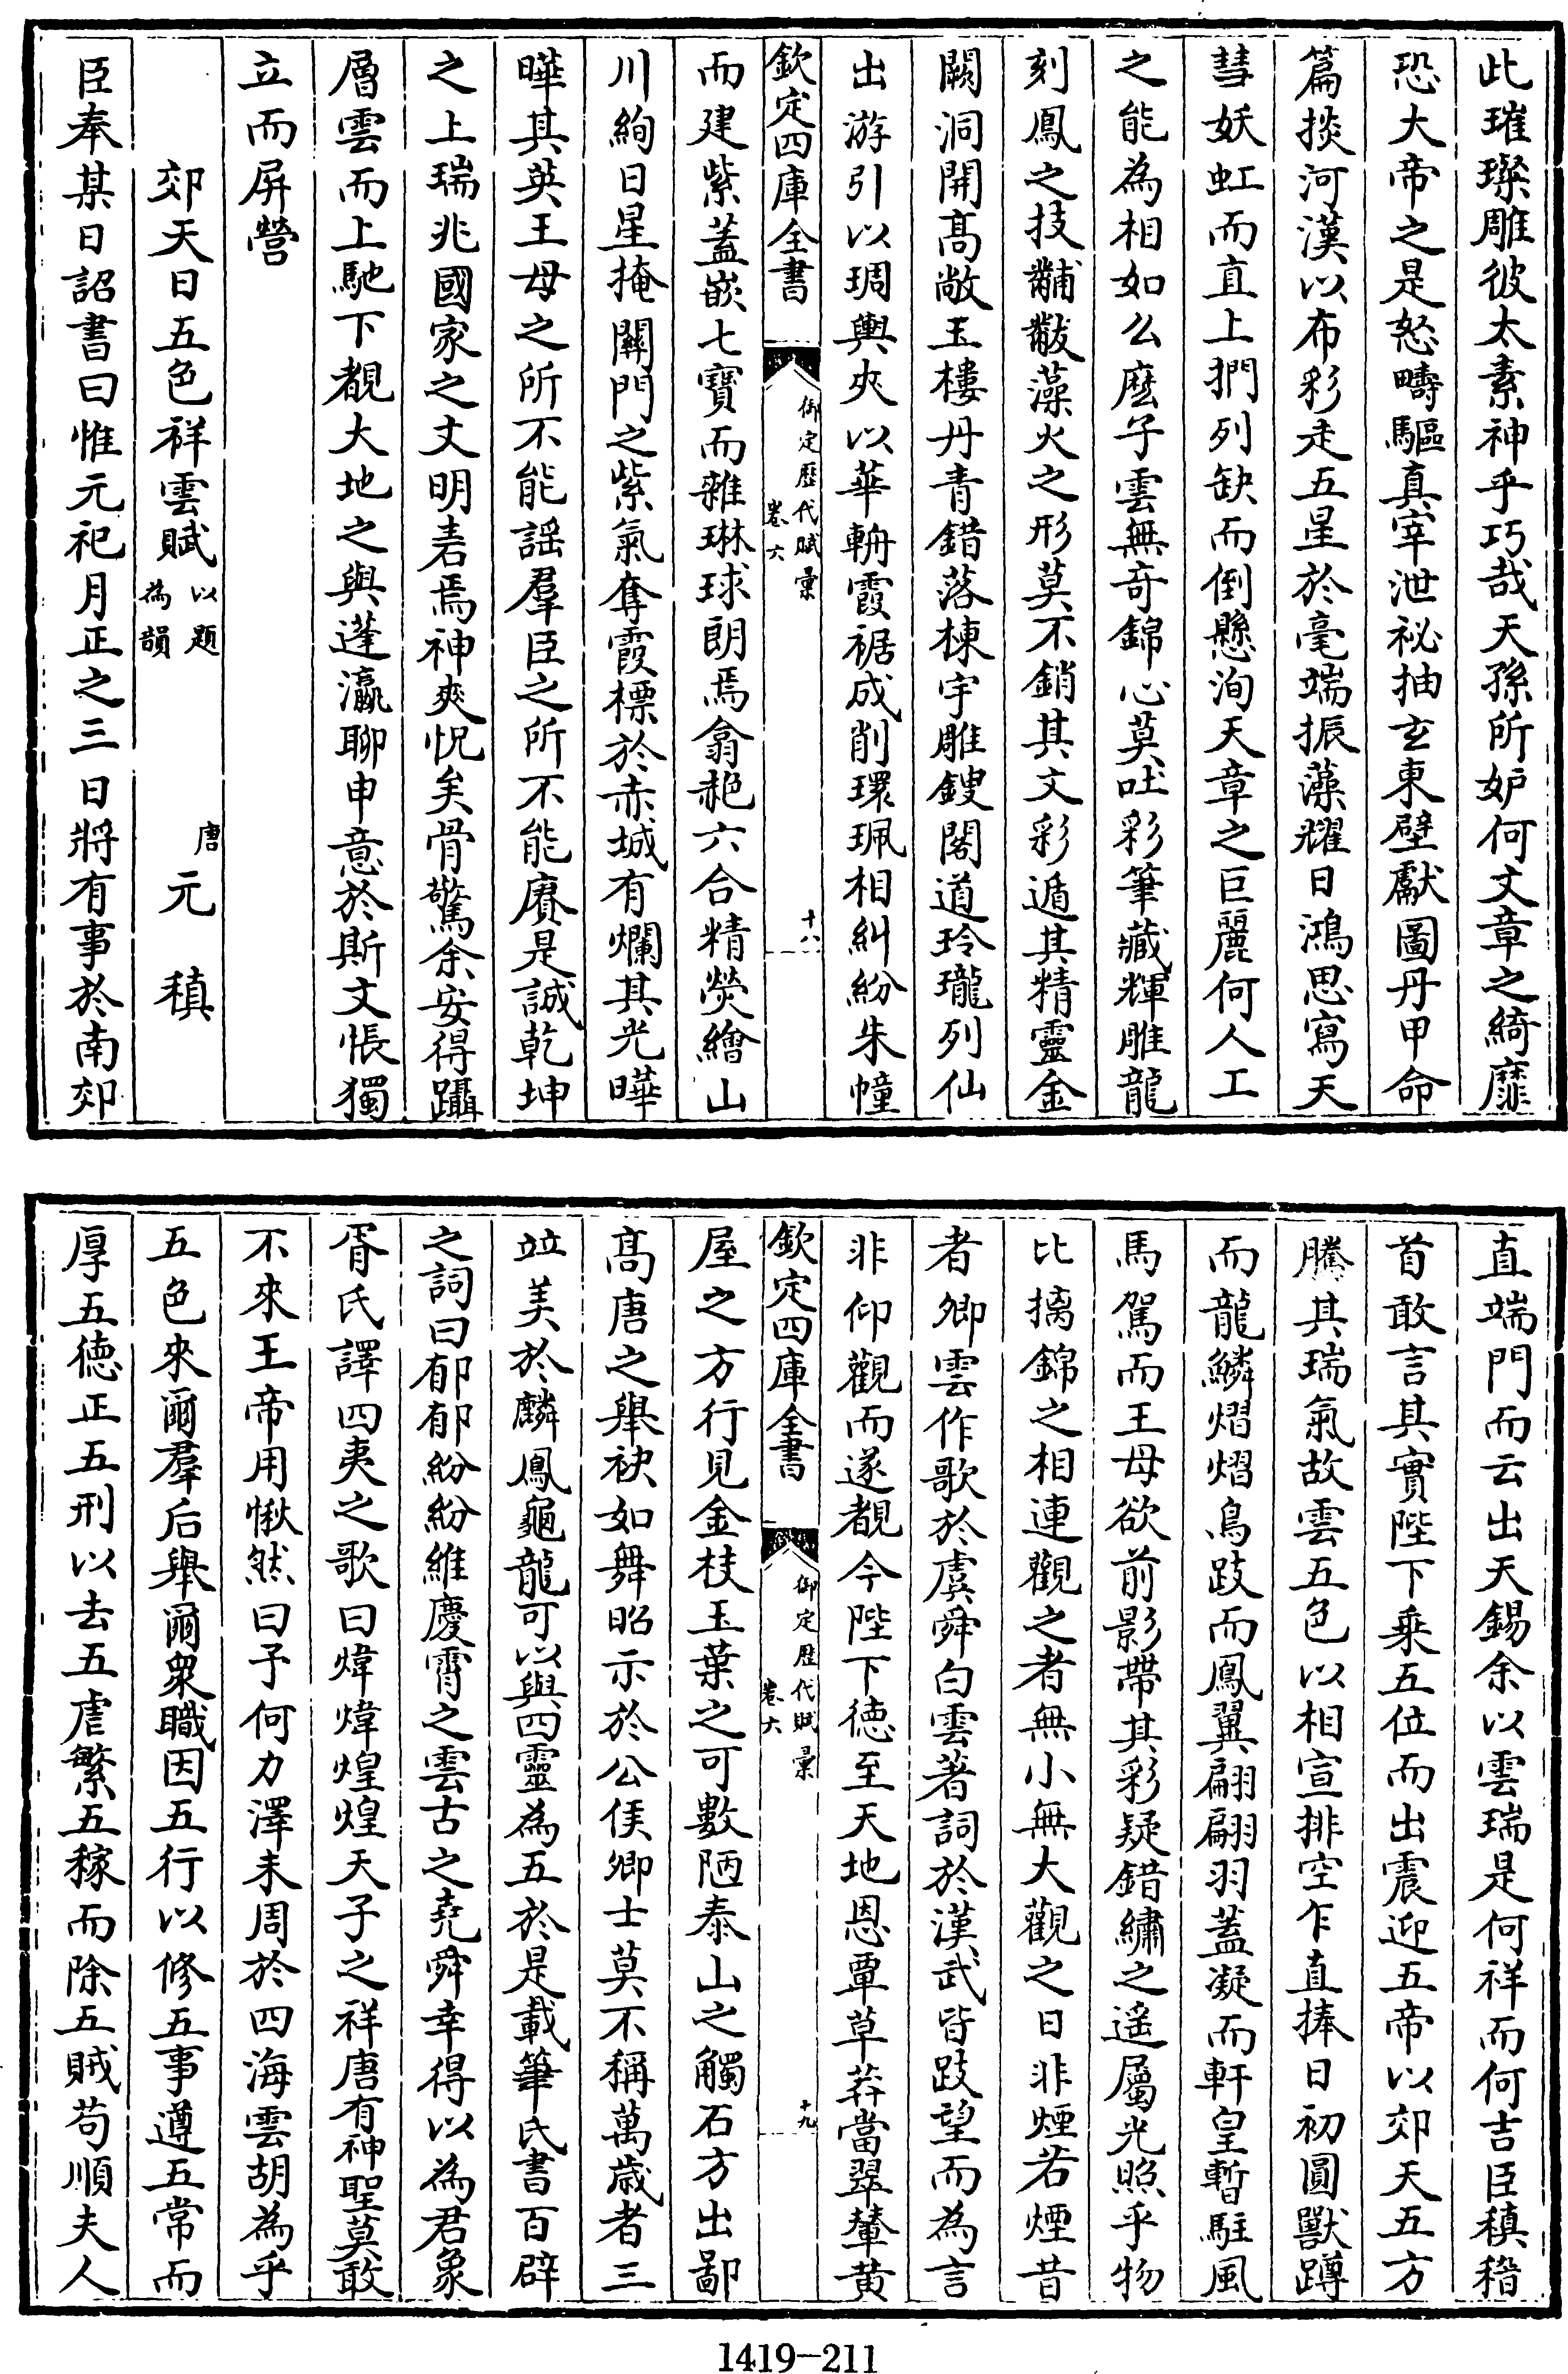 此璀璨雕彼太素神乎巧哉天孫所妒何文章之綺靡
恐大帝之是怒疇驅真宰泄祕抽玄東壁獻圖丹甲命
篇掞河漢以布彩走五星於毫端振藻耀日鴻思寫天
彗妖虹而直上捫列缺而倒懸洵天章之巨麗何人工
之能為相如么麽子雲無奇錦心莫吐彩筆藏輝雕龍
刻鳳之技黼黻藻火之形莫不銷其文彩遁其精靈金
闕洞開髙敞玉樓丹青錯落棟宇雕鎪閣道玲瓏列仙
出游引以琱輿夾以華輈霞裾成削環珮相糾紛朱幢
欽定四庫全書
御定歷代賦彙
卷六
十八
而建紫蓋嵌七寶而雜琳球朗焉翕赩六合精熒繪山
川絢日星掩關門之紫氣奪霞標於赤城有爛其光曄
曄其英王母之所不能謡羣臣之所不能賡是誠乾坤
之上瑞兆國家之文明耆焉神爽怳矣骨驚余安得躡
層雲而上馳下覩大地之與蓬瀛聊申意於斯文悵獨
立而屏營
郊天日五色祥雲賦以題為韻
唐元稹
臣奉某日詔書曰惟元祀月正之三日將有事於南郊
直端門而云出天錫余以雲瑞是何祥而何吉臣稹稽
首敢言其實陛下乗五位而出震迎五帝以郊天五方
騰其瑞氣故雲五色以相宣排空乍直捧日初圓獸蹲
而龍鱗熠熠鳥跂而鳳翼翩翩羽蓋凝而軒皇暫駐風
馬駕而王母欲前影帶其彩疑錯繡之遥屬光照乎物
比摛錦之相連觀之者無小無大觀之日非煙若煙昔
者卿雲作歌於虞舜白雲著詞於漢武皆跂望而為言
非仰觀而遂覩今陛下徳至天地恩覃草莽當翠輦黄
欽定四庫全書
御定歷代賦彙
卷六
十九
屋之方行見金枝玉葉之可數陋泰山之觸石方出鄙
髙唐之舉袂如舞昭示於公侯卿士莫不稱萬歲者三
竝美於麟鳳龜龍可以與四靈為五於是載筆氏書百辟
之詞曰郁郁紛紛維慶霄之雲古之堯舜幸得以為君象
胥氏譯四夷之歌曰煒煒煌煌天子之祥唐有神聖莫敢
不來王帝用愀然曰予何力澤未周於四海雲胡為乎
五色來爾羣后舉爾衆職因五行以修五事遵五常而
厚五徳正五刑以去五虐繁五稼而除五賊苟順夫人
1419-211